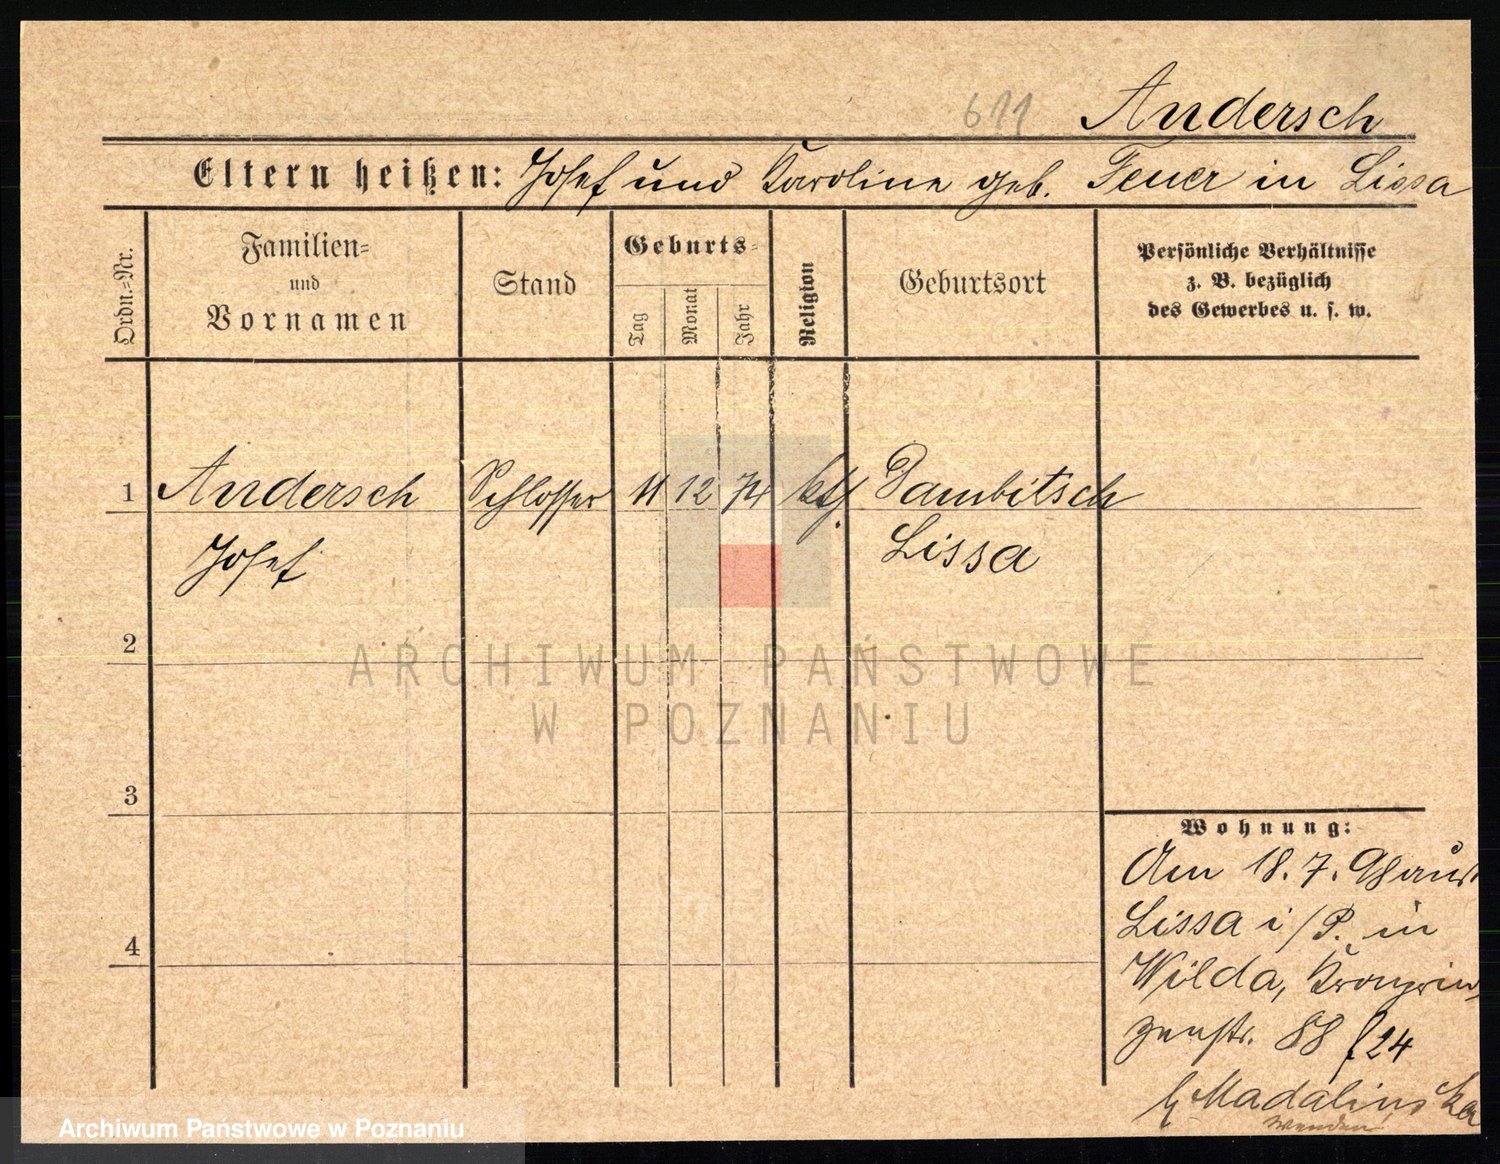 611 Andersch
Eltern heißen: Josef und Karoline geb. Feuer in Lissa
Ordn.=Nr.
Familien=
und
Vornamen
Stand
Geburts=
Tag
Monat
Jahr
Religion
Geburtsort
Persönliche Verhältnisse
z. B. bezüglich
des Gewerbes u. s. w.
1 Andersch Schlosser 11 12 74 kth. Dambitsch
Josef Lissa
2
ARCHIWUM PAŃSTWOWE
W POZNANIU
3
Wohnung:
Am 18. 7. 98 aus
Lissa i/P. in
4
Wilda, Kronprin
zenstr. 88
24
b/ Madalinska
wenden
Archiwum Państwowe w Poznaniu